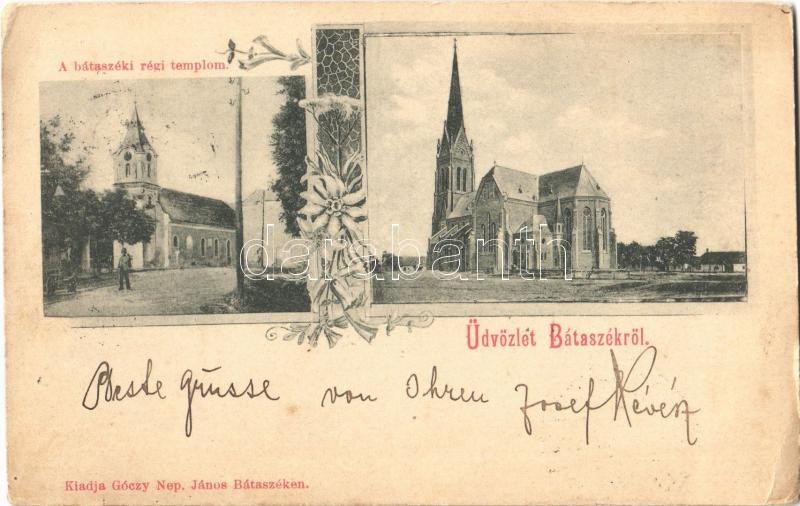 A bátaszéki régi templom.
darabanth
Üdvözlet Bátaszékről.
Beste Grüsse von Ihren Josef Révész
Kiadja Góczy Nep. János Bátaszéken.